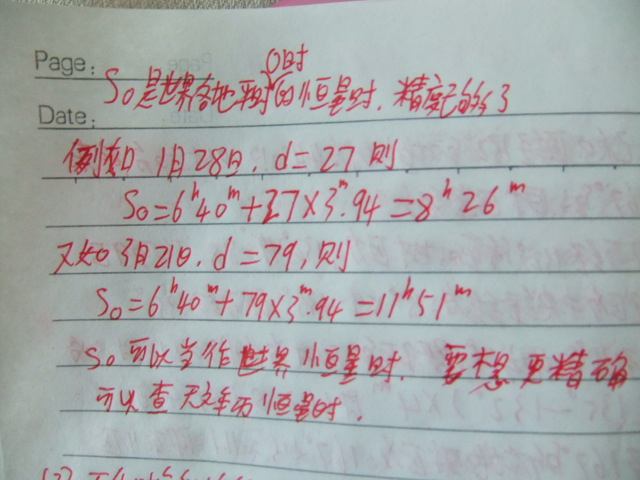 Page:
0时
S₀是世界各地平时的恒星时. 精度已够了
Date:
例如 1月28日, d=27 则
S₀=6ʰ40ᵐ+27×3ᵐ.94=8ʰ26ᵐ
又如 3月21日. d=79, 则
S₀=6ʰ40ᵐ+79×3ᵐ.94=11ʰ51ᵐ
S₀ 可以当作世界恒星时. 要想更精确
可以查天文年历恒星时.